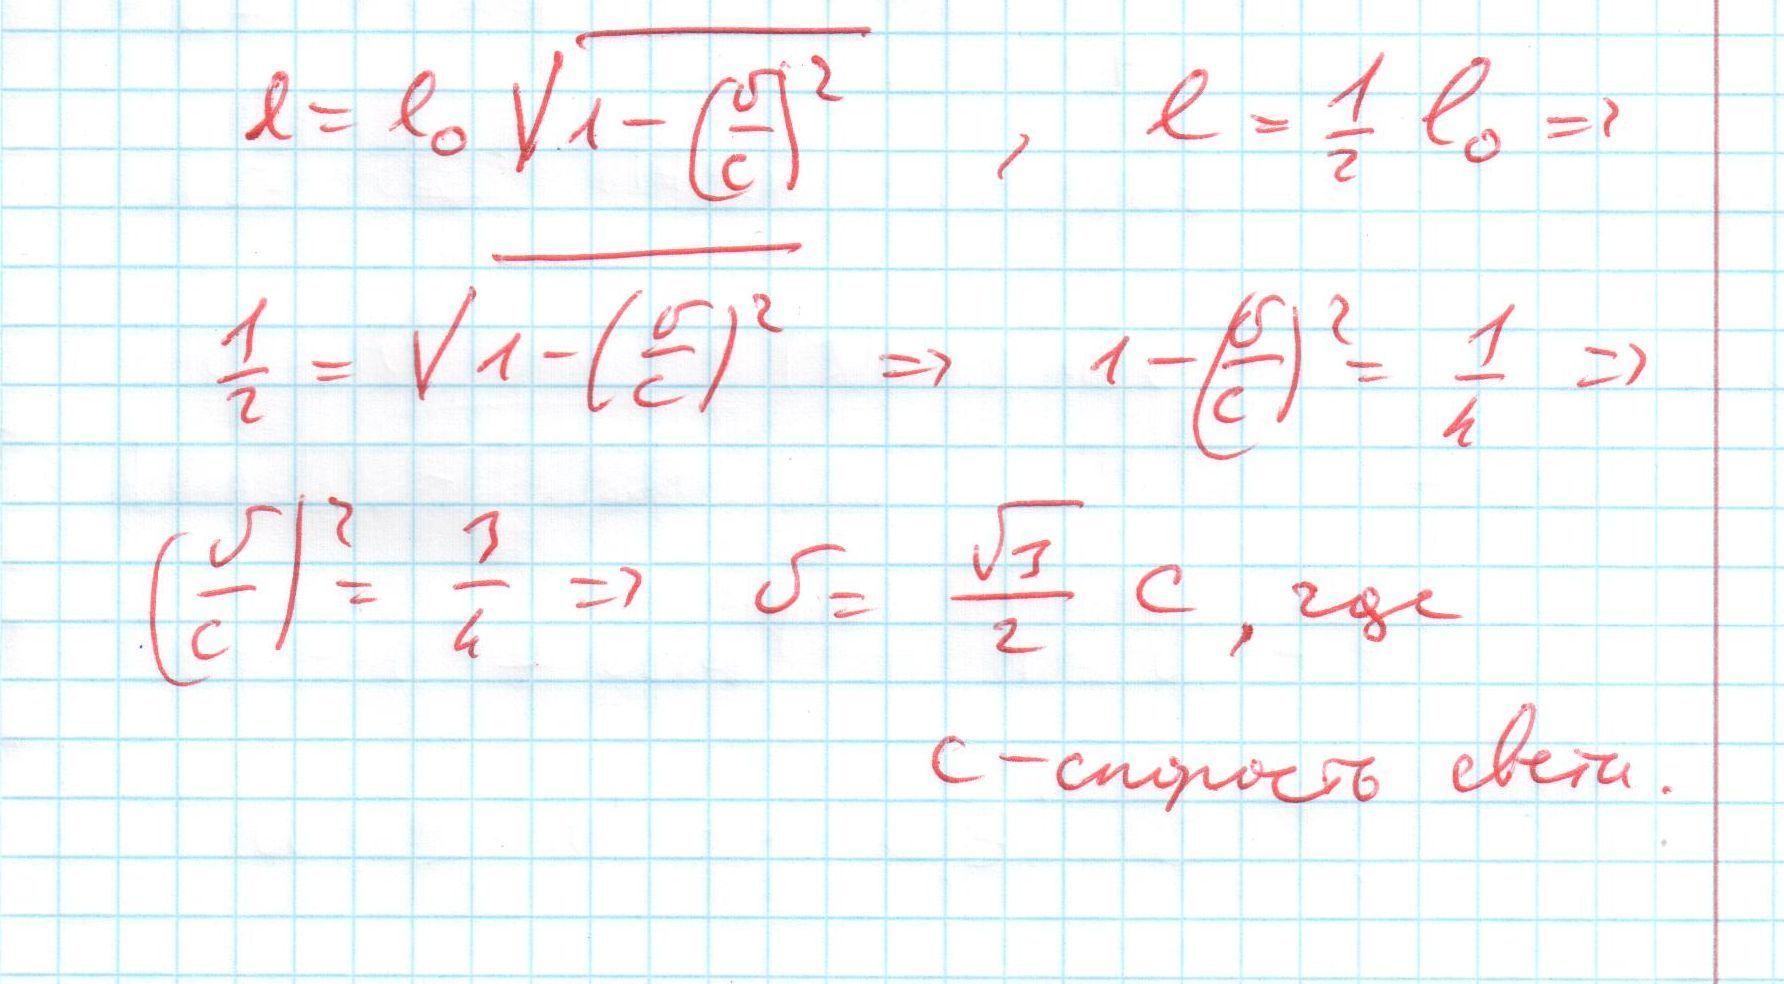 l = l₀ √(1 − (υ/c)²) , l = 1/2 l₀ =>
1/2 = √(1 − (υ/c)²) => 1 − (υ/c)² = 1/4 =>
(υ/c)² = 3/4 => υ = √3/2 c , где
c – скорость света.